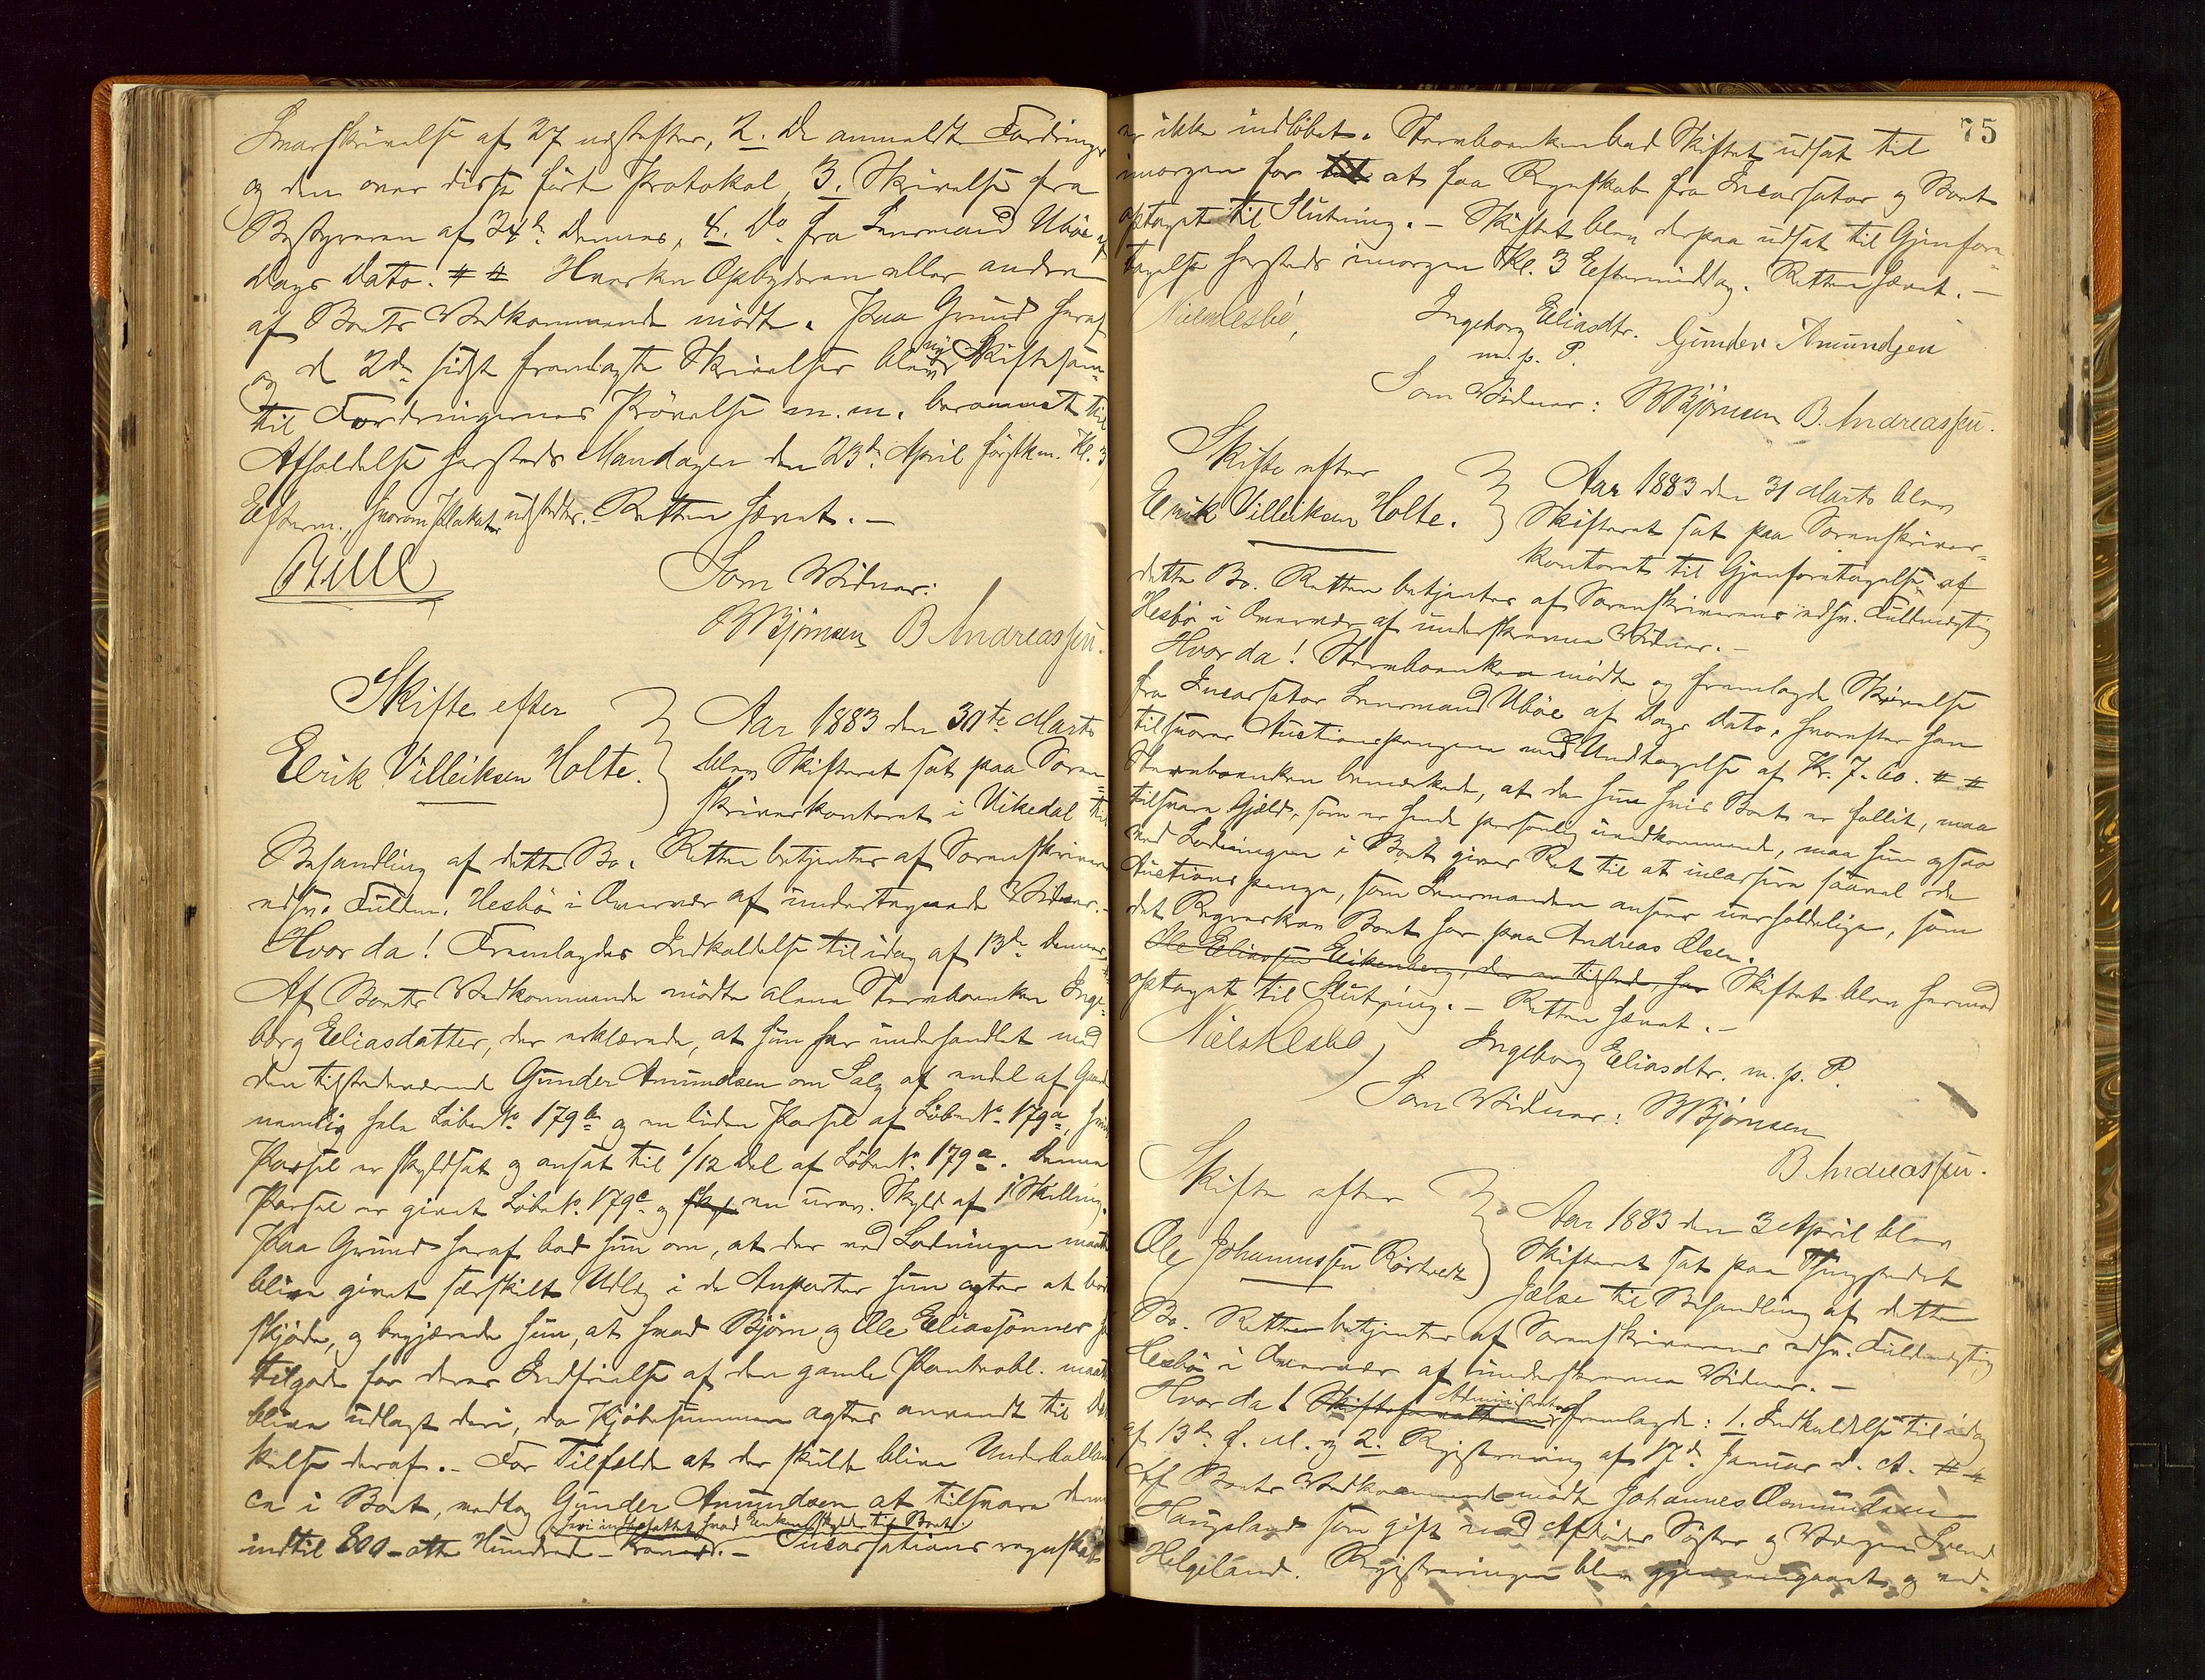 Svarskrivelse af 27 næstefter, 2. De anmeldte Fordringer
og den over disse førte Protokol, 3. Skrivelse fra
Bestyreren af 24de Dennes, 4. Do fra Lensmand Ubøe af
Dags Dato. # # Hverken Opbyderen eller andre
af Boets Vedkommende mødte. Paa Grund heraf
og d 2de sidst fremlagte Skrivelser blev ny Skiftesam-
til Fordringernes Prøvelse m.m. berammet til
Afholdelse hersteds Mandagen den 23de April førstk. Kl. 3
Efterm., hvorom Plakater udstedtes. Retten hævet. –
Som Vidner:
MBjørnsen B Andreassen.
Skifte efter
Erik Villeiksen Holte.
Aar 1883 den 30te Marts
blev Skifteret sat paa Soren-
skriverkontoret i Vikedal til
Behandling af dette Bo. Retten betjentes af Sorenskriverens
edsv. Fuldm. Hesbø i Overvær af undertegnede Vidner. –
Hvor da! Fremlagdes Indkaldelse til idag af 13de Dennes.
Af Boets Vedkommende mødte alene Stervboenken Inge-
borg Eliasdatter, der erklærede, at hun har underhandlet med
den tilstedeværende Gunder Amundsen om Salg af endel af Gaarden
nemlig hele Løbe No. 179b og en liden Parsel af Løbe No. 179a, hvilken
Parsel er skyldsat og ansat til 1/12 Del af Løbe No. 179a. Denne
Parsel er givet Løbe No. 179c og en urev. Skyld af 1 Skilling.
Paa Grund heraf bad hun om, at der ved Lodningen maatte
blive givet særskilt Udlæg i de Anparter hun agter at bort
skjøde, og begjærede hun, at hvad Bjørn og Ole Eliassønner har
tilgode for deres Indfrielse af den gamle Panteobl. maatte
blive udlagt deri, da Kjøbesummen agtes anvendt til Dæk-
kelse deraf. – For Tilfælde at der skulde blive Underballan-
ce i Boet, vedtog Gunder Amundsen at tilsvare denne
heri indbefattet hvad Enken skylder til Boet
indtil 800 – otte Hundrede – Kroner. – Incassationsregnskab
75
er ikke indløbet. Stervboenken bad Skiftet udsat til
imorgen for at faa Regnskab fra Incassator og Boet
optaget til Slutning. – Skiftet blev derpaa udsat til Gjenfore-
tagelse hersteds imorgen Kl. 3 Eftermiddag. Retten hævet. –
Niels Hesbø,
Ingeborg Eliasdtr. Gunder Amundsen
m. p. P.
Som Vidner: MBjørnsen B. Andreassen.
Skifte efter
Erik Villeiksen Holte.
Aar 1883 den 31 Marts blev
Skifteret sat paa Sorenskriver-
kontoret til Gjenforetagelse af
dette Bo. Retten betjentes af Sorenskriverens edsv. Fuldmægtig
Hesbø i Overvær af underskrevne Vidner. –
Hvor da! Stervboenken mødte og fremlagde Skrivelse
fra Incassator Lensmand Ubøe af Dags Dato, hvorefter han
tilsvarer Auctionspengene med Undtagelse af Kr. 7.60. # #
Stervboenken bemærkede, at da hun hvis Boet er fallit, maa
tilsvare Gjæld, som er hende personlig uvedkommende, maa hun ogsaa
ved Lodningen i Boet gives Ret til at incassere saavel de
Auctionspenge, som Lensmanden anser uerholdelige, som
det Regreskrav Boet har paa Andreas Olsen.
Ole Eliassen Eikenberg, der er tilstede, har Skiftet blev hermed
optaget til Slutning. – Retten hævet. –
Niels Hesbø
Ingeborg Eliasdtr. m. p. P.
Som Vidner: MBjørnsen
B Andreassen.
Skifte efter
Ole Johannessen Rørtvedt
Aar 1883 den 3 April blev
Skifteret sat paa Thingstedet
Jelse til Behandling af dette
Bo. Retten betjentes af Sorenskriverens edsv. Fuldmægtig
Hesbø i Overvær af underskrevne Vidner. –
Hvor da! Administrator fremlagde: 1. Indkaldelse til idag
af 13de f. M. og 2. Registrering af 17de Januar d. A. # #
Af Boets Vedkommende mødte Johannes Osmundsen
Haugeland som gift med Afdødes Søster og Værgen Svend
Helgeland. Registreringen blev gjennemgaaet og ved-